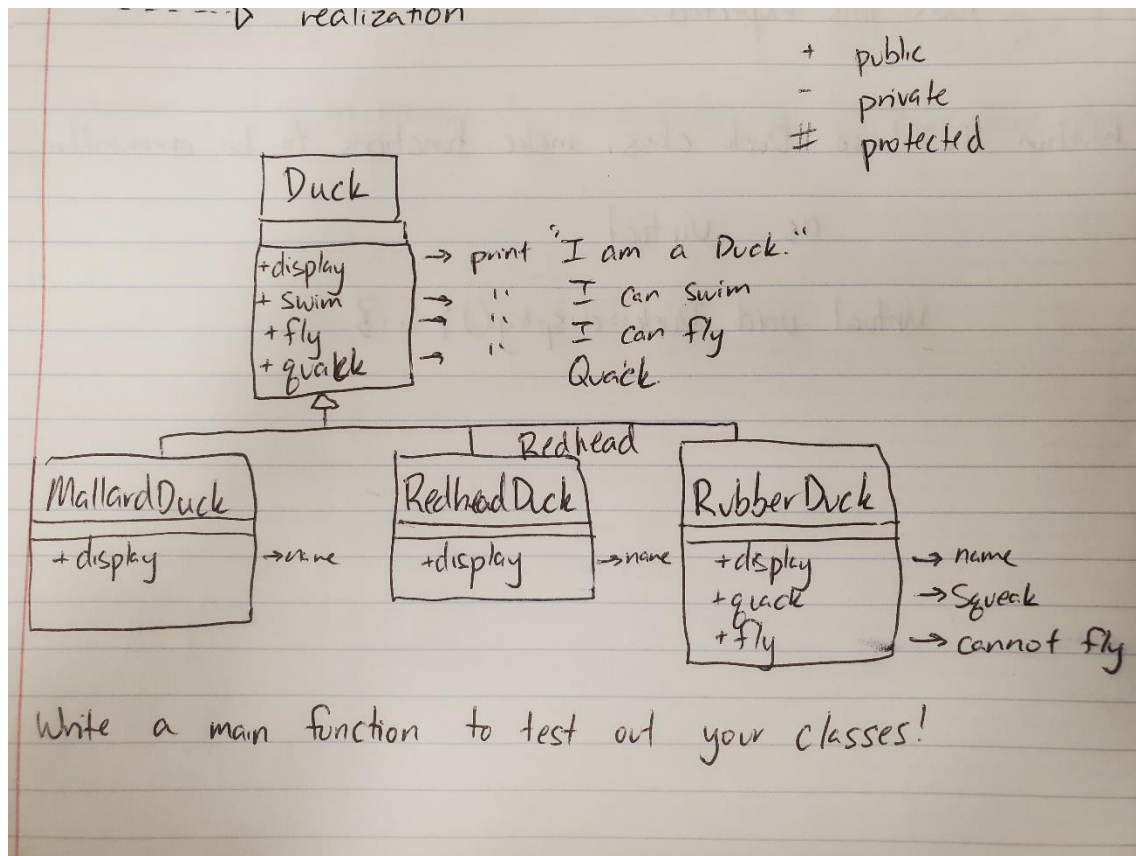 realization
+ public
- private
# protected
Duck
+display → print "I am a Duck."
+ swim → " I can swim
+ fly → " I can fly
+ quakk → " Quack.
Redhead
MallardDuck
+display → name
RedheadDuck
+display → name
RubberDuck
+display → name
+quack → Squeak
+fly → cannot fly
Write a main function to test out your classes!